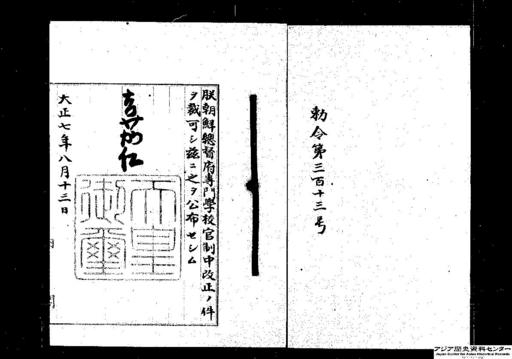 勅令第三百十三号
朕朝鮮總督府專門學校官制中改正ノ件
ヲ裁可シ茲ニ之ヲ公布セシム
嘉仁
天皇
御璽
大正七年八月十三日
アジア歴史資料センター
Japan Center for Asian Historical Records